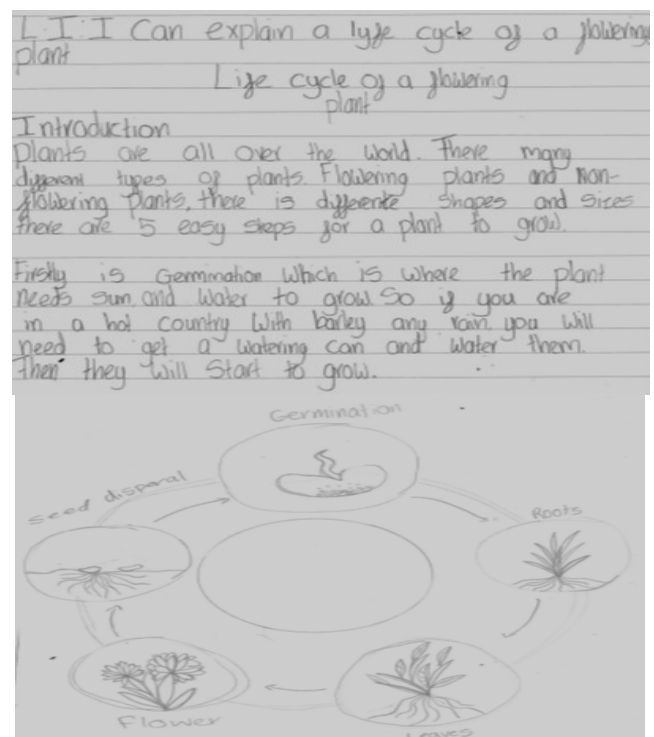 L.I: I Can explain a lyfe cycle of a flowering
plant
Life cycle of a flowering
plant
Introduction
Plants are all over the world. There many
different types of plants. Flowering plants and non-
flowering plants, there is differente shapes and sizes
there are 5 easy steps for a plant to grow.
Firstly is Germination which is where the plant
needs sun and water to grow. So if you are
in a hot country with barley any rain you will
need to get a watering can and water them.
Then they will start to grow.
Germination
Seed disparsal
Roots
Flower
Leaves